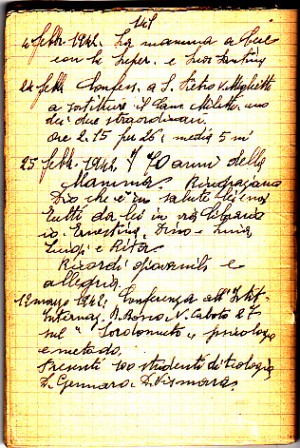 141
4 febbr. 1942. La mamma a
con le Super. e
24 febb Confess. a S. Pietro V. Miglietti
a sostituire il Can. Miletto, uno
dei due straordinari.
ore 2.15 per 26; media 5 m'
25 febb. 1942. I 70 anni della
Mamma. Ringraziamo
Dio che è in salute. Siamo
tutti da lei in via
io. Ernestina, Dino e Lucia,
Luigi e Rita.
Ricordi giovanili e
allegria.
12 marzo 1942. Conferenza all'Istit.
Internaz. D. Bosco, V. Caboto 27
sul "Sordomuto", psicologia
e metodo.
Presenti 100 studenti di teologia,
D. Gennaro, D. Vismara.